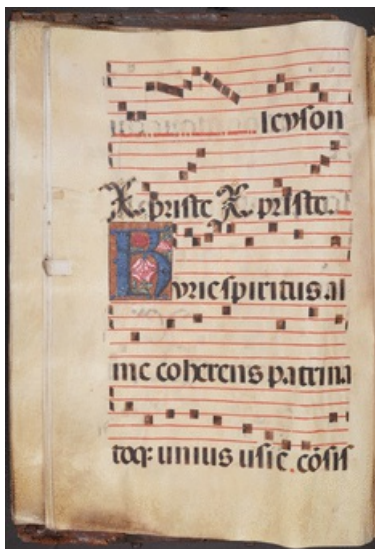 leyson
Xpriste Xpriste.
Kyrie spiritus al
me coherens patri na
toq; unius usie. cōsis